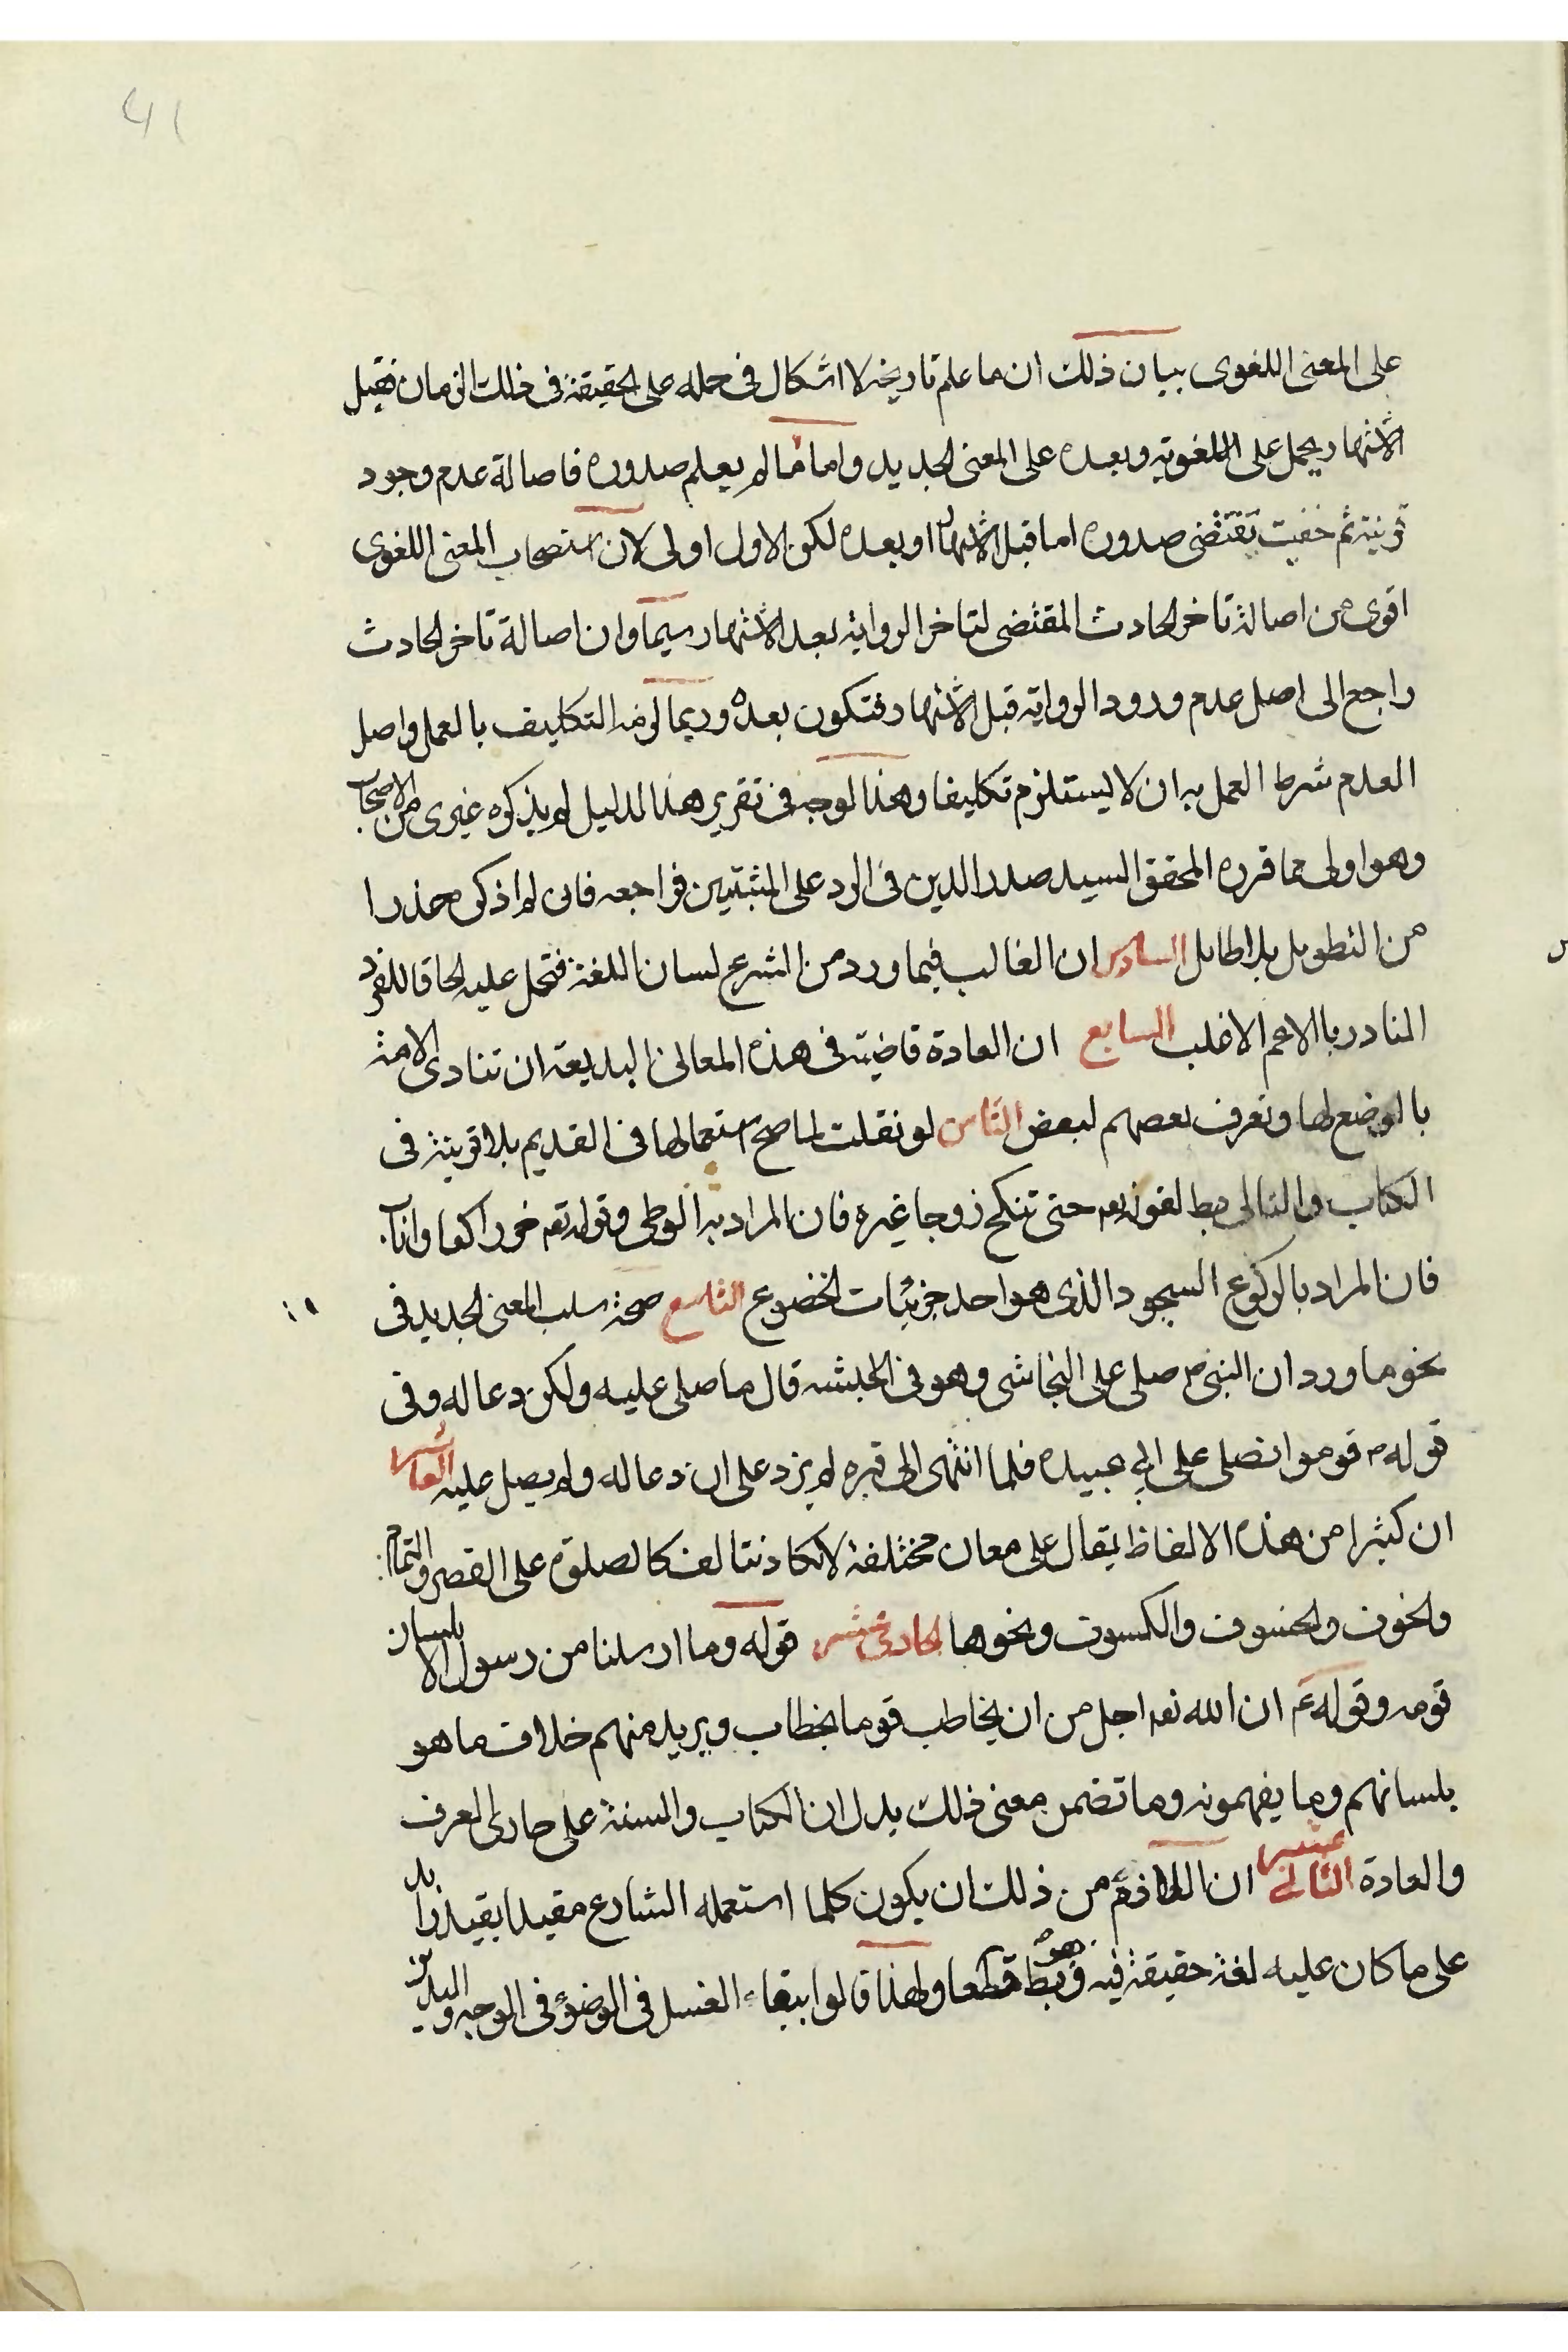 41
على المعنى اللغوى بيان ذلك ان ما علم تاريخه لا اشكال فى حمله على الحقيقة فى ذلك الزمان فقبل
الاشتهار يحمل على اللغوية وبعده على المعنى الجديد واما ما لم يعلم صدوره فاصالة عدم وجود
قرينة ثم خفيت يقتضى صدوره اما قبل الاشتهار او بعده لكن الاول اولى لان استصحاب المعنى اللغوى
اقوى من اصالة تاخر الحادث المقتضى لتاخر الرواية بعد الاشتهار سيما وان اصالة تاخر الحادث
راجع الى اصل عدم ورود الرواية قبل الاشتهار فتكون بعده وربما لزمه التكليف بالعمل واصل
العدم شرط العمل به ان لا يستلزم تكليفا وهذا الوجه فى تقرير هذا الدليل لم يذكره غيرى من الاصحاب
وهو اولى مما قرره المحقق السيد صدر الدين فى الرد على المثبتين فراجعه فانى لم اذكره حذرا
من التطويل بلا طايل السادس ان الغالب فيما ورد من الشرع لسان اللغة فتحمل عليه الحاقا للفرد
النادر بالاعم الاغلب السابع ان العادة قاضية فى هذه المعانى البديعة ان تنادى الامة
بالوضع لها وتعرف بعضهم لبعض الثامن لو نقلت لما صح استعمالها فى القديم بلا قرينة فى
الكتاب والتالى بط لقوله تعه حتى تنكح زوجا غيره فان المراد به الوطى وقوله تعه خر راكعا واناب
فان المراد بالركوع السجود الذى هو احد جزئيات الخضوع التاسع صحة سلب المعنى الجديد فى
نحو ما ورد ان النبى ص صلى على النجاشى وهو فى الحبشه قال ما صلى عليه ولكن دعا له وفى
قوله ص قوموا نصلى على ابى عبيده فلما انتهى الى قبره لم يزد على ان دعا له ولم يصل عليه العاشر
ان كثيرا من هذه الالفاظ يقال على معان مختلفة لا تكاد تتالف كالصلوة على القصر والتمام
والخوف والخسوف والكسوف ونحوها الحادى عشر قوله وما ارسلنا من رسول الا بلسان
قومه وقوله ع ان الله تعه اجل من ان يخاطب قوما بخطاب ويريد منهم خلاف ما هو
بلسانهم وما يفهمونه وما تضمن معنى ذلك يدل ان الكتاب والسنة على مجارى العرف
والعادة الثانى عشر ان اللازم من ذلك ان يكون كلما استعمله الشارع مقيدا بقيد زايد
على ما كان عليه لغة حقيقة فيه وهو بط قطعا ولهذا قالوا ببقاء الغسل فى الوضوء فى الوجه واليدين